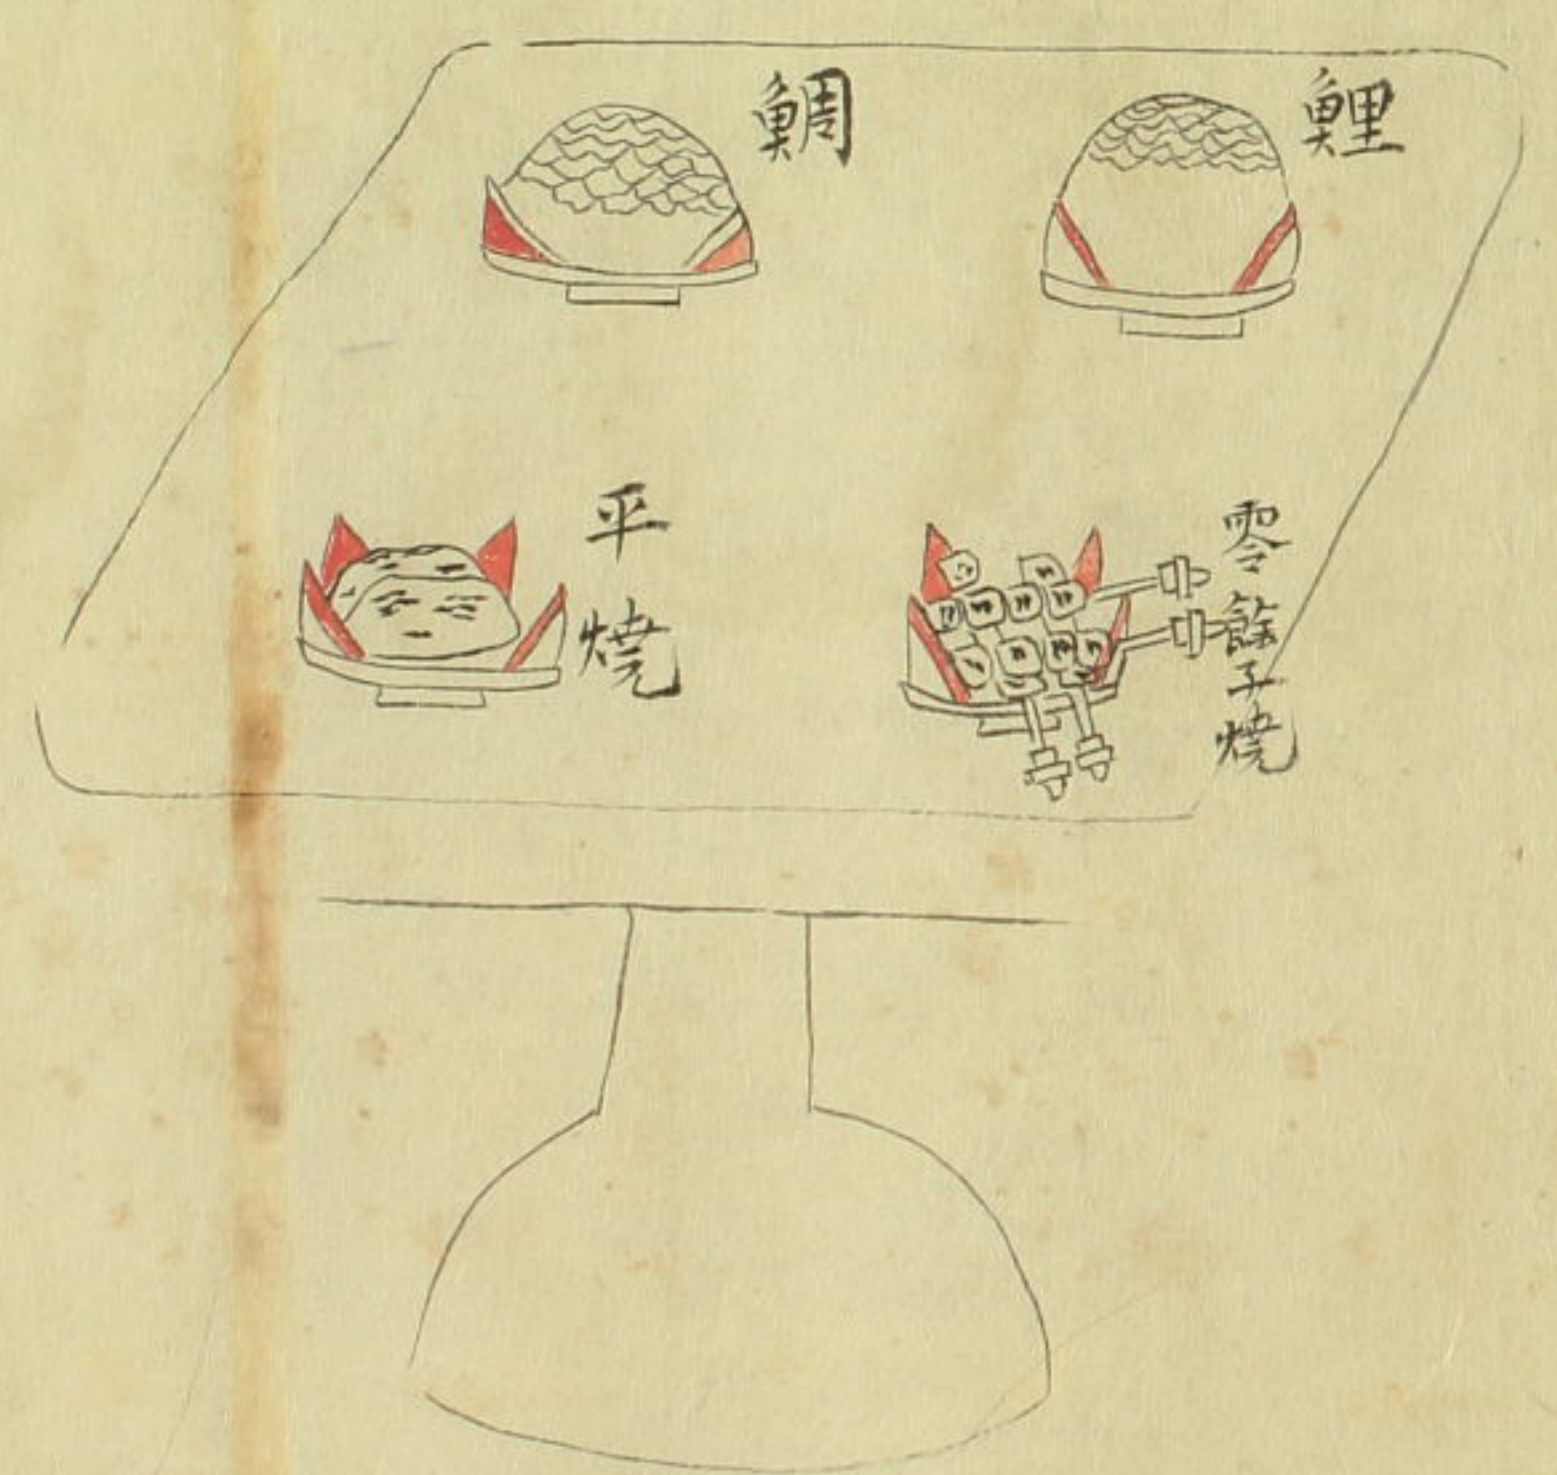 鯉
鯛
零餘子燒
平燒